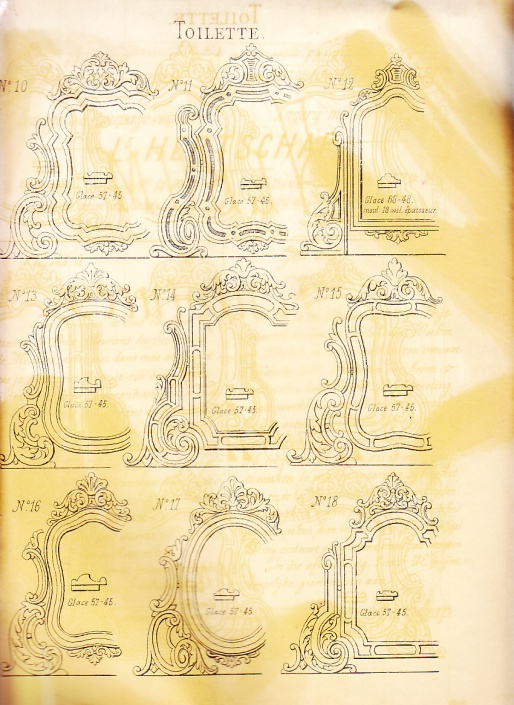 TOILETTE.
N° 10
N° 11
N° 12
Glace 57-45
Glace 57-45.
Glace 66-48.
moul. 18 mil. épaisseur.
N° 13
N° 14
N° 15
Glace 57-45.
Glace 57-45.
Glace 57-45.
N° 16
N° 17
N° 18
Glace 57-45.
Glace 57-45.
Glace 57-45.